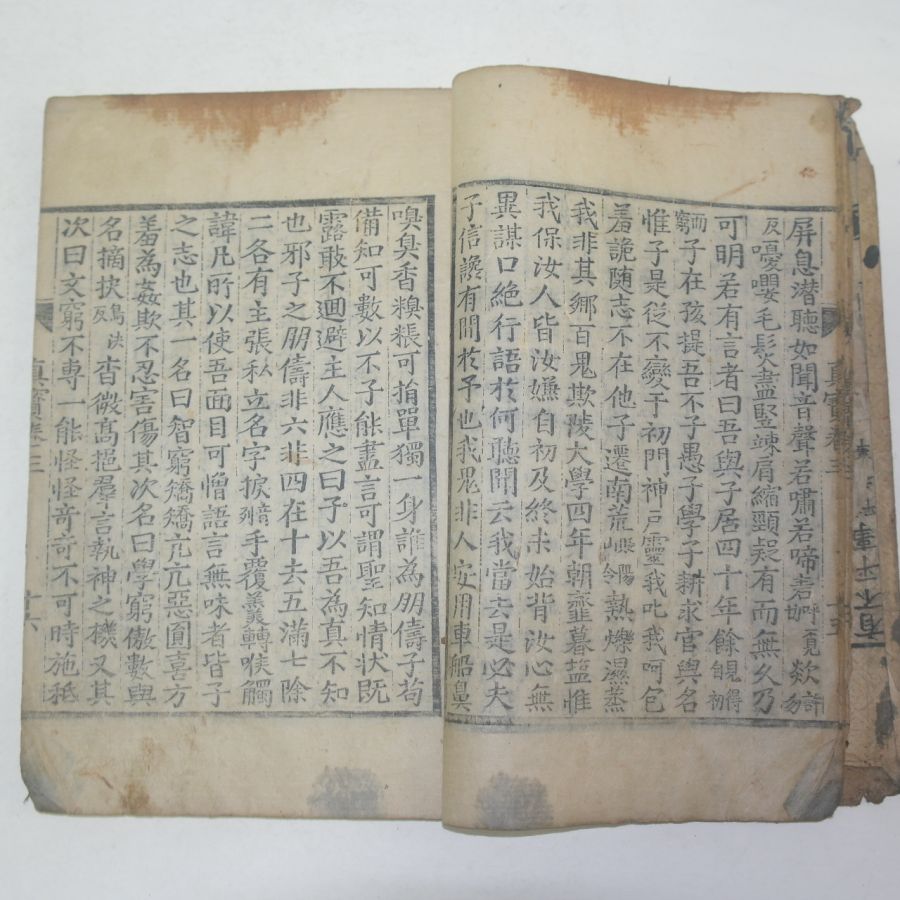 屏息潜聽如聞音聲若嘯若啼砉呼覓欻許勿
反嚘嚶毛髮盡竪竦肩縮頸疑有而無久乃
可明若有言者曰吾與子居四十年餘自初見得
而窮子在孩提吾不子愚子學子耕求官與名
惟子是從不變于初門神戶靈我叱我呵包
羞詭随志不在他子遷南荒熱爍濕蒸
我非其鄉百鬼欺陵大學四年朝韲暮塩惟
我保汝人皆汝嫌自初及終未始背汝心無
異謀口絶行語於何聽聞云我當去是必夫
子信讒有間於予也我鬼非人安用車船鼻
嗅臭香糗粻可捐單獨一身誰為朋儔子苟
備知可數以不子能盡言可謂聖知情状既
露敢不迴避主人應之曰子以吾為真不知
也邪子之朋儔非六非四在十去五滿七除
二各有主張私立名字捩手覆羹轉喉觸
諱凡所以使吾面目可憎語言無味者皆子
之志也其一名曰智窮矯矯亢亢惡圓喜方
羞為姦欺不忍害傷其次名曰學窮傲數與
名摘抉烏決反杳微高挹羣言執神之機又其
次曰文窮不專一能怪怪奇奇不可時施秪
真寶卷三
十六